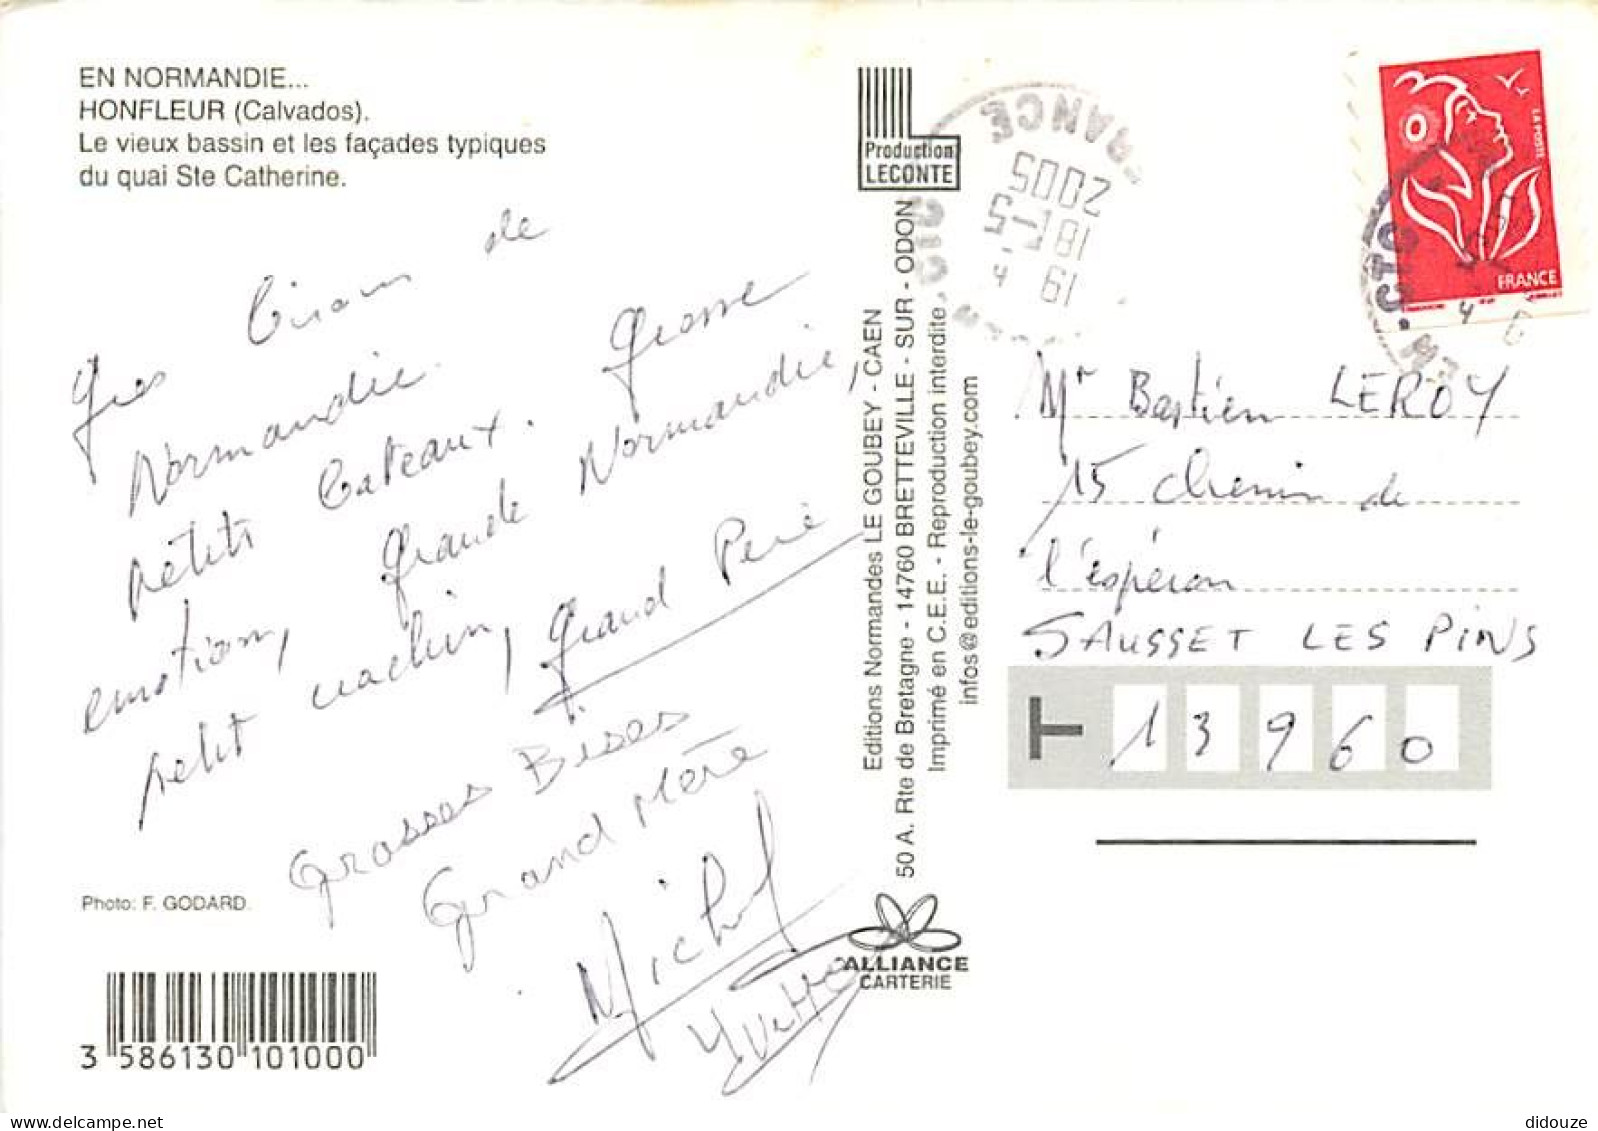 EN NORMANDIE...
HONFLEUR (Calvados).
Le vieux bassin et les façades typiques
du quai Ste Catherine.
de
Normandie. Grosse
petits Gateaux.
emotion, Grande Normandie,
petit Grand Pere
Grosses Bises
Grand Mère
Michel
Yvette
Photo: F. GODARD.
3 586130 101000
Production
LECONTE
Editions Normandes LE GOUBEY - CAEN
50 A. Rte de Bretagne - 14760 BRETTEVILLE - SUR - ODON
Imprimé en C.E.E. - Reproduction interdite
infos@editions-le-goubey.com
ALLIANCE
CARTERIE
FRANCE
2005
LA POSTE
FRANCE
Mr Bastien LEROY
15 chemin de
l'espéron
SAUSSET LES PINS
T 13960
didouze